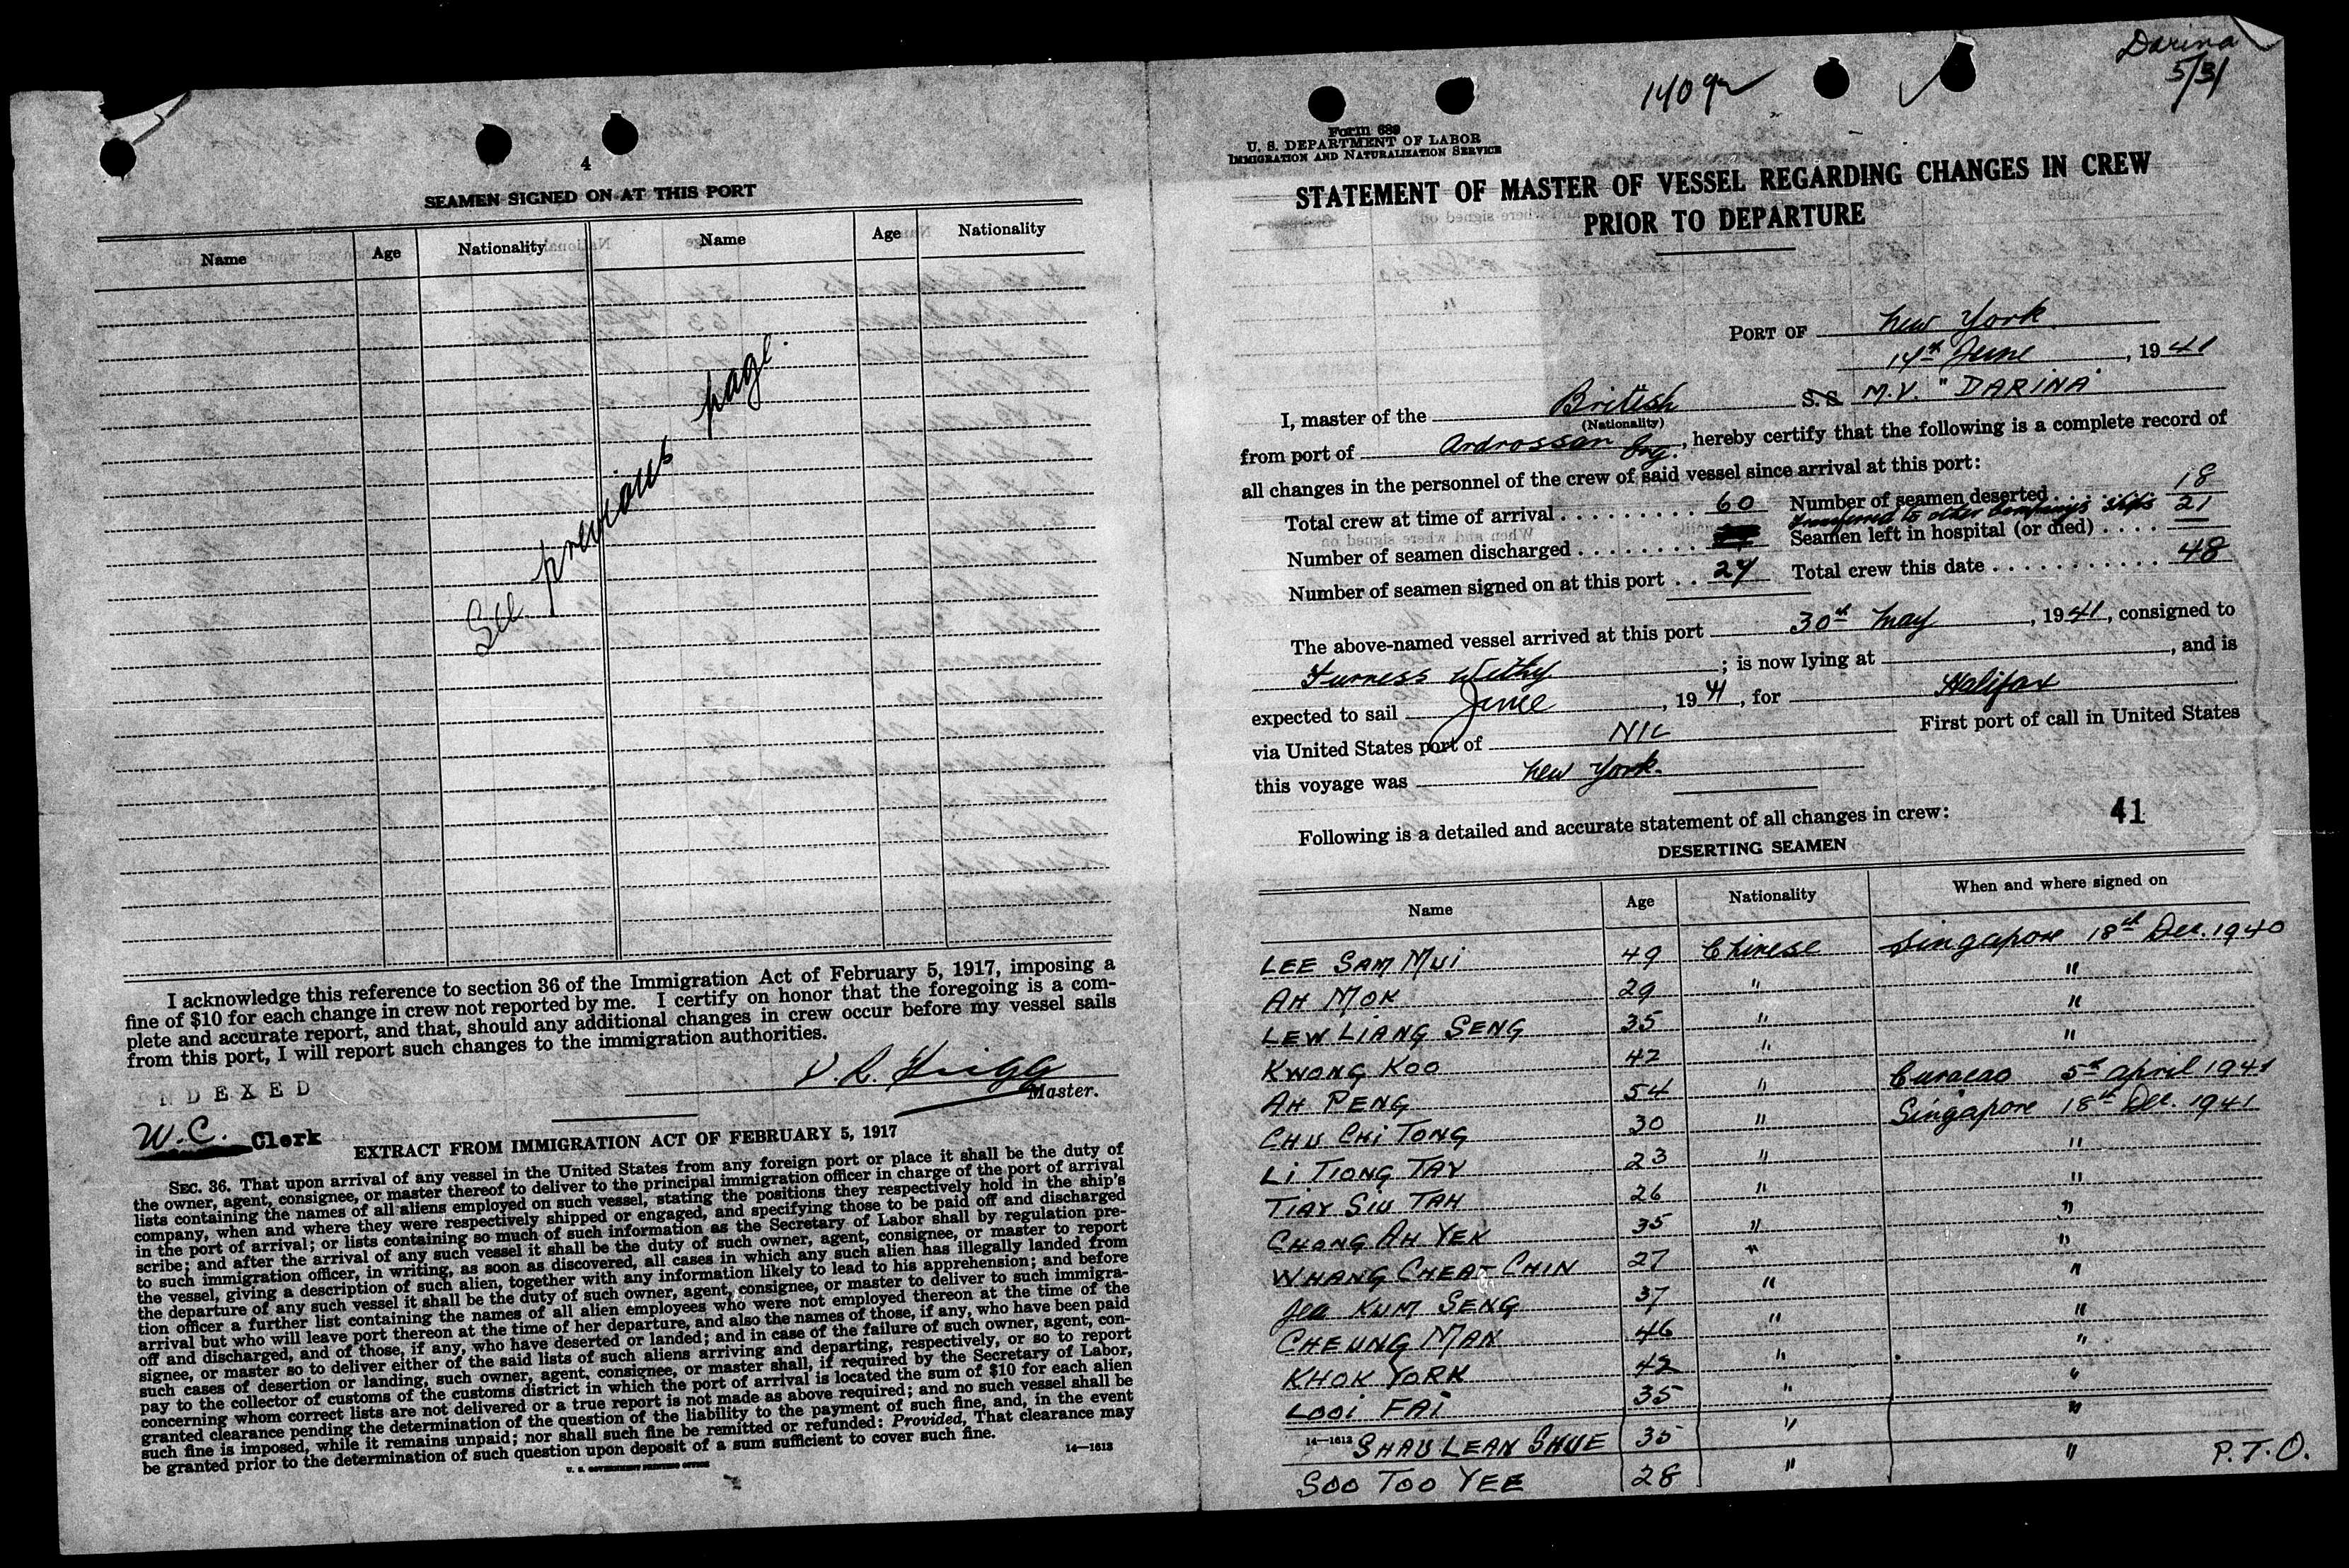 4
SEAMEN SIGNED ON AT THIS PORT
Name Age Nationality Name Age Nationality
See previous page.
I acknowledge this reference to section 36 of the Immigration Act of February 5, 1917, imposing a
fine of $10 for each change in crew not reported by me. I certify on honor that the foregoing is a com-
plete and accurate report, and that, should any additional changes in crew occur before my vessel sails
from this port, I will report such changes to the immigration authorities.
Master.
NDEXED
W.C. Clerk
EXTRACT FROM IMMIGRATION ACT OF FEBRUARY 5, 1917
SEC. 36. That upon arrival of any vessel in the United States from any foreign port or place it shall be the duty of
the owner, agent, consignee, or master thereof to deliver to the principal immigration officer in charge of the port of arrival
lists containing the names of all aliens employed on such vessel, stating the positions they respectively hold in the ship's
company, when and where they were respectively shipped or engaged, and specifying those to be paid off and discharged
in the port of arrival; or lists containing so much of such information as the Secretary of Labor shall by regulation pre-
scribe; and after the arrival of any such vessel it shall be the duty of such owner, agent, consignee, or master to report
to such immigration officer, in writing, as soon as discovered, all cases in which any such alien has illegally landed from
the vessel, giving a description of such alien, together with any information likely to lead to his apprehension; and before
the departure of any such vessel it shall be the duty of such owner, agent, consignee, or master to deliver to such immigra-
tion officer a further list containing the names of all alien employees who were not employed thereon at the time of the
arrival but who will leave port thereon at the time of her departure, and also the names of those, if any, who have been paid
off and discharged, and of those, if any, who have deserted or landed; and in case of the failure of such owner, agent, con-
signee, or master so to deliver either of the said lists of such aliens arriving and departing, respectively, or so to report
such cases of desertion or landing, such owner, agent, consignee, or master shall, if required by the Secretary of Labor,
pay to the collector of customs of the customs district in which the port of arrival is located the sum of $10 for each alien
concerning whom correct lists are not delivered or a true report is not made as above required; and no such vessel shall be
granted clearance pending the determination of the question of the liability to the payment of such fine, and, in the event
such fine is imposed, while it remains unpaid; nor shall such fine be remitted or refunded: Provided, That clearance may
be granted prior to the determination of such question upon deposit of a sum sufficient to cover such fine.
14—1613
U. S. GOVERNMENT PRINTING OFFICE
Darina
5/31
Form 689
U. S. DEPARTMENT OF LABOR
IMMIGRATION AND NATURALIZATION SERVICE
STATEMENT OF MASTER OF VESSEL REGARDING CHANGES IN CREW
PRIOR TO DEPARTURE
PORT OF New York
14th June, 1941
I, master of the British S.S. M.V. "DARINA"
(Nationality)
from port of Ardrossan Eng., hereby certify that the following is a complete record of
all changes in the personnel of the crew of said vessel since arrival at this port:
Total crew at time of arrival 60 Number of seamen deserted 18
transferred to other Company's ships 21
Number of seamen discharged Seamen left in hospital (or died) —
Number of seamen signed on at this port 27 Total crew this date 48
The above-named vessel arrived at this port 30th May, 1941, consigned to
Furness Withy; is now lying at , and is
expected to sail June, 1941, for Halifax
via United States port of NIL First port of call in United States
this voyage was New York.
41
Following is a detailed and accurate statement of all changes in crew:
DESERTING SEAMEN
Name Age Nationality When and where signed on
LEE SAM MUI 49 Chinese Singapore 18th Dec. 1940
AH MOK 29 " "
LEW LIANG SENG 35 " "
KWONG KOO 42 " "
AH PENG 54 " Curacao 5th April 1941
CHU CHI TONG 30 " Singapore 18th Dec. 1941
LI TIONG TAY 23 " "
TIAY SIU TAH 26 " "
CHONG AH YEK 35 " "
WHANG CHEAT CHIN 27 " "
KUM SENG 37 " "
CHEUNG MAN 46 " "
KHOK YORK 42 " "
LOOI FAI 35 " "
14—1613 SHAU LEAN SHUE 35 " "
SOO TOO YEE 28 " "
P.T.O.